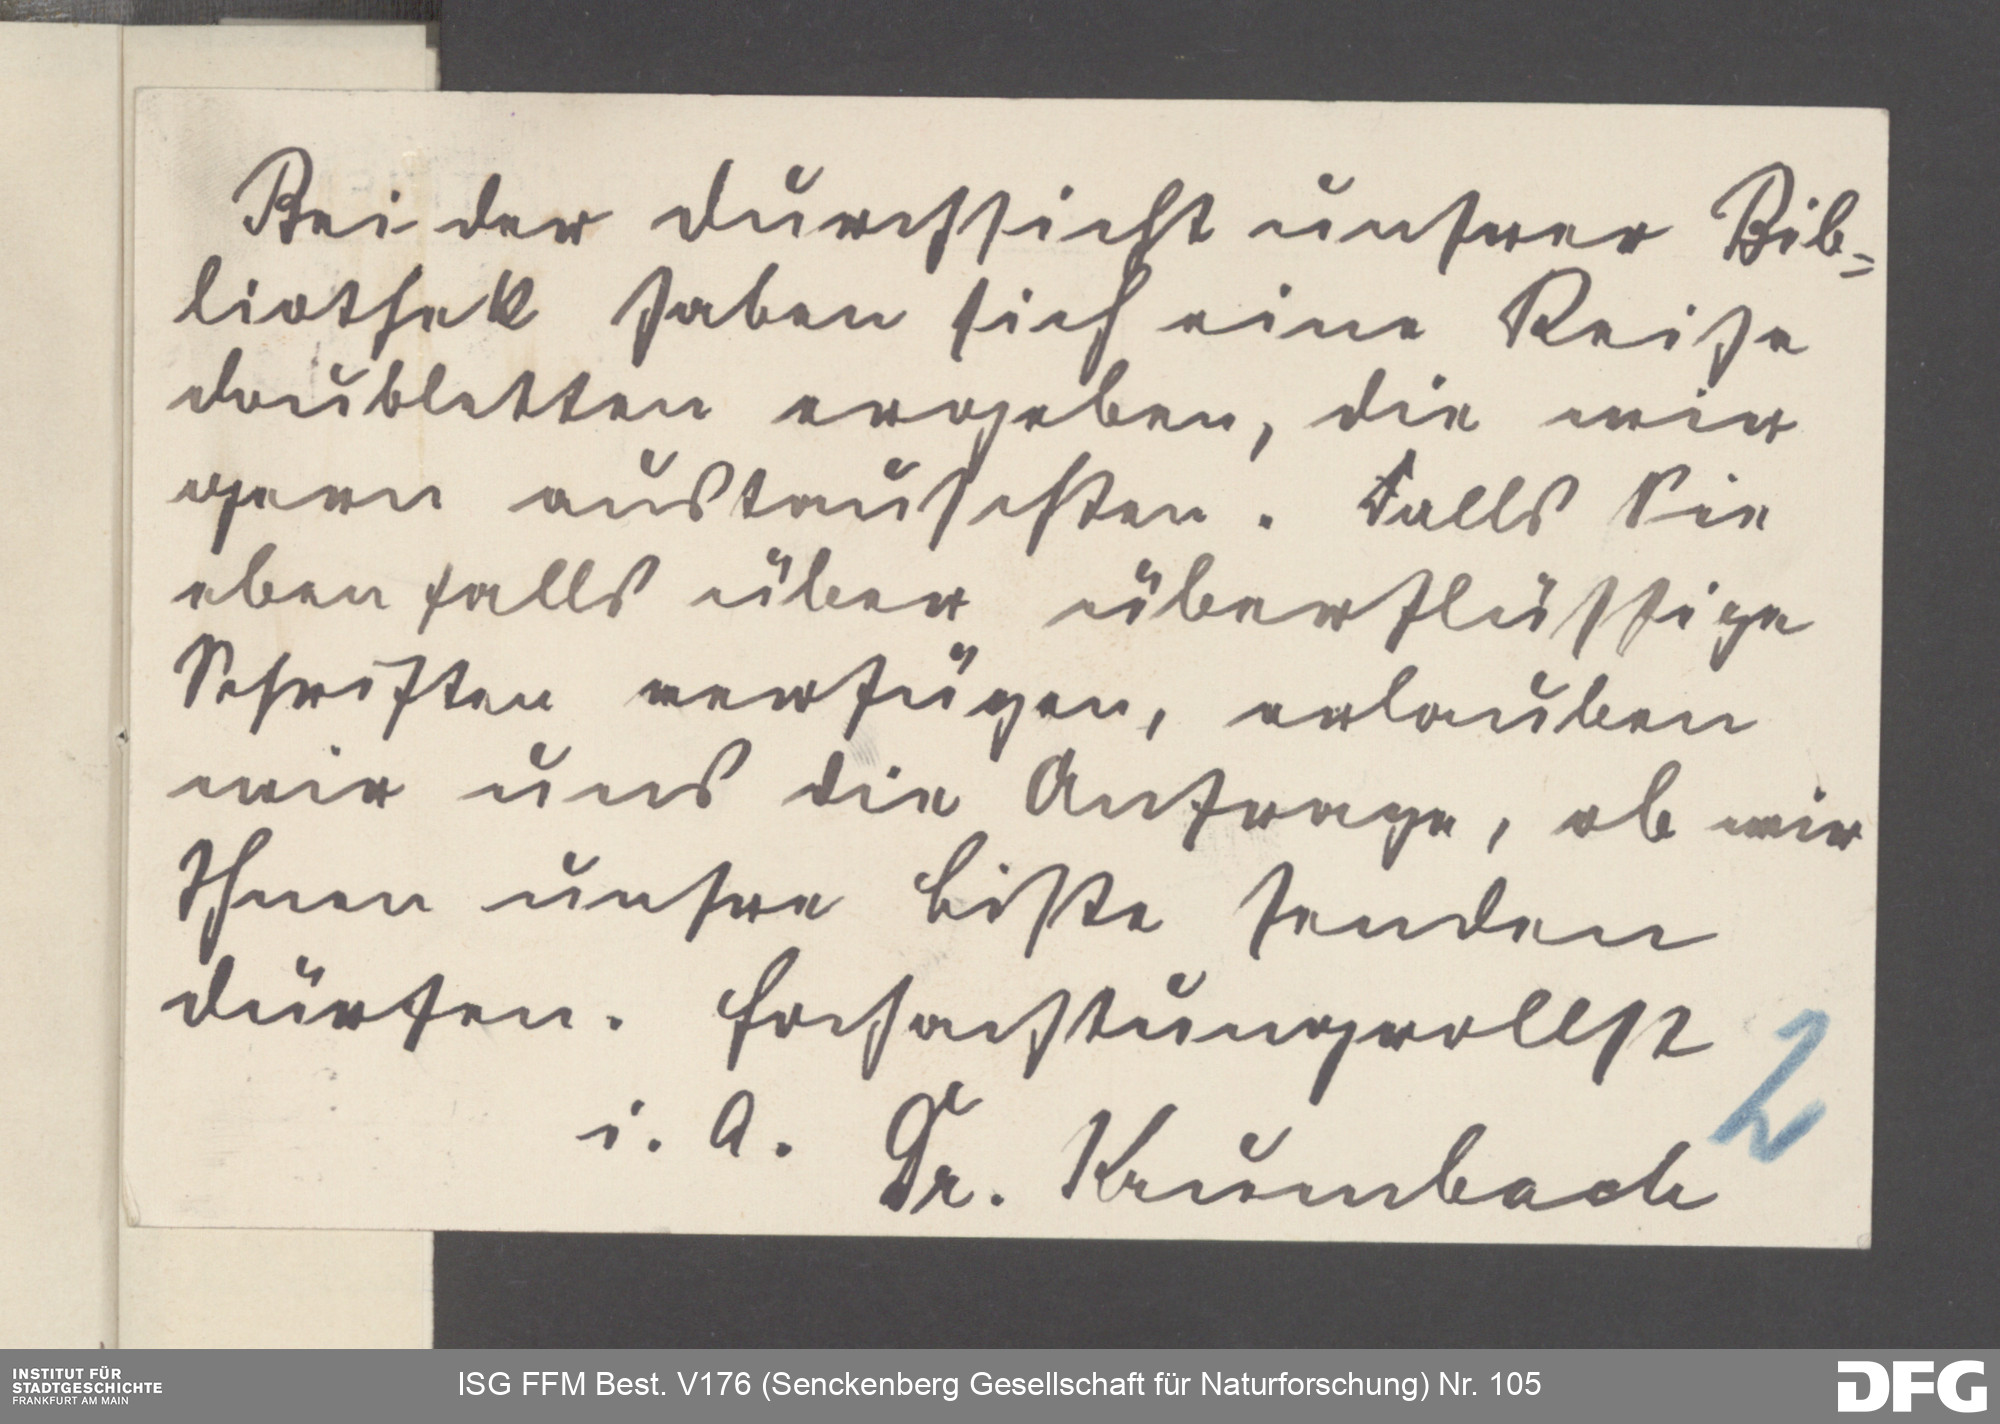 Bei der Durchsicht unsrer Bib=
liothek haben sich eine Reihe
doubletten ergeben, die wir
gern austauschten. Falls Sie
ebenfalls über überflüssige
Schriften verfügen, erlauben
wir uns die Anfrage, ob wir
Ihnen unsre Liste senden
dürfen. Hochachtungsvollst
i. A. Dr. Krumbach
2
INSTITUT FÜR
STADTGESCHICHTE
FRANKFURT AM MAIN
ISG FFM Best. V176 (Senckenberg Gesellschaft für Naturforschung) Nr. 105
DFG